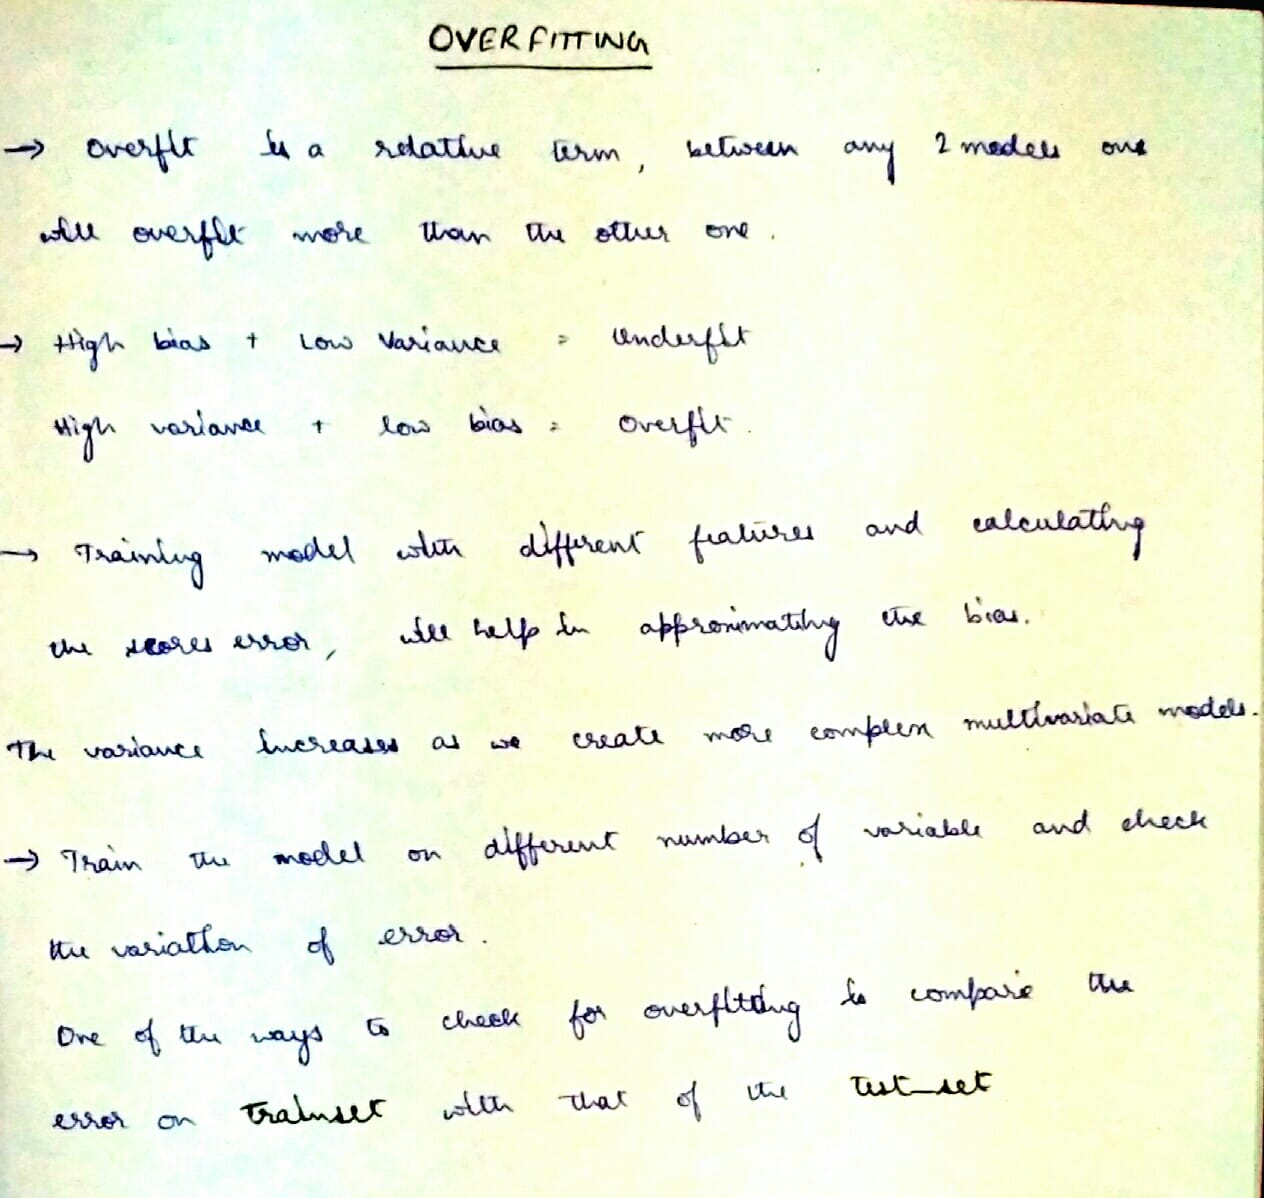 OVERFITTING
→ Overfit is a relative term, between any 2 models one
will overfit more than the other one.
→ High bias + Low Variance = Underfit
High variance + low bias = Overfit.
→ Training model with different features and calculating
the scores error, will help in approximating the bias.
The variance increases as we create more complex multivariate models.
→ Train the model on different number of variable and check
the variation of error.
One of the ways to check for overfitting is compare the
error on trainset with that of the test_set